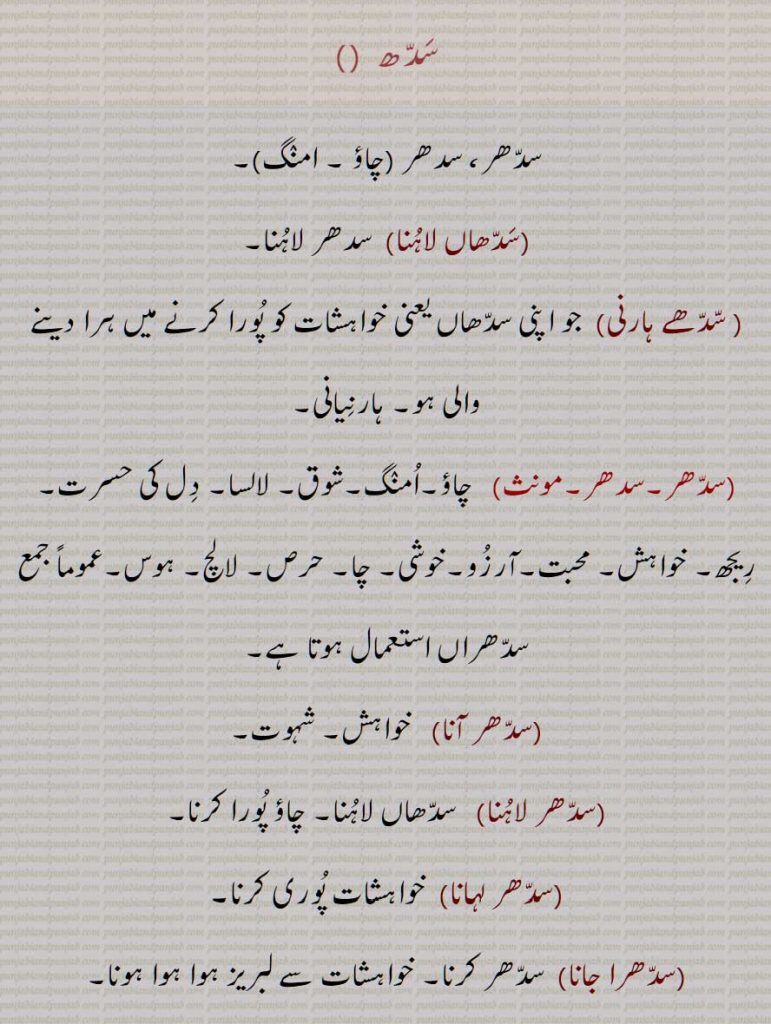 سَدّھ ()
سدّھر، سدھر (چاؤ ۔ امنگ)۔
(سَدّھاں لاہُنا) سدھر لاہُنا۔
(سّدّھے ہارنی) جو اپنی سدّھاں یعنی خواہشات کو پُورا کرنے میں ہرا دینے
والی ہو۔ ہارنِیانی۔
(سدّھر۔سدھر۔مونث) چاؤ۔اُمنگ۔شوق۔ لالسا۔ دِل کی حسرت۔
رِیجھ۔ خواہش۔ محبت۔آرزُو۔خوشی۔ چا۔ حرص۔ لالچ۔ ہوس۔عموماً جمع
سدّھراں استعمال ہوتا ہے۔
(سدّھر آنا) خواہش۔ شہوت۔
(سدّھر لاہُنا) سدّھاں لاہُنا۔ چاؤ پُورا کرنا۔
(سدّھر لہانا) خواہشات پُوری کرنا۔
(سدّھرا جانا) سدّھر کرنا۔ خواہشات سے لبریز ہوا ہوا ہونا۔